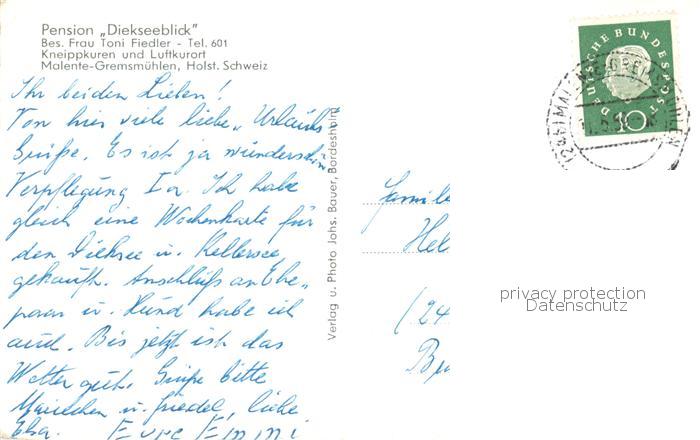 Pension „Diekseeblick"
Bes. Frau Toni Fiedler - Tel. 601
Kneippkuren und Luftkurort
Malente-Gremsmühlen, Holst. Schweiz
Ihr beiden Lieben!
Von hier viele liebe „Urlaubs"
Grüße. Es ist ja wunderschön
Verpflegung Ia. Ich habe
gleich eine Wochenkarte für
den Dieksee u. Kellersee
gekauft. Anschluß an Ehe„
paar u. Hund habe ich
auch. Bis jetzt ist das
Wetter gut. Grüße bitte
u. Friedel, liebe
Elsa. Eure Emmi
Verlag u. Photo Johs. Bauer, Bordesholm
DEUTSCHE BUNDESPOST
10
Familie
Hel
(24
privacy protection
Datenschutz